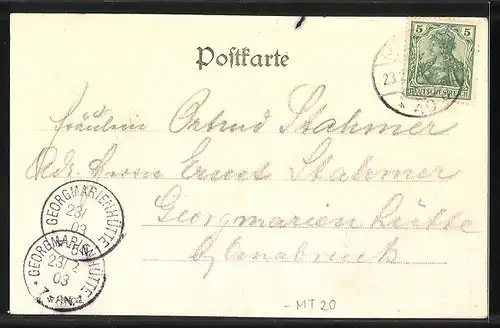 Postkarte
5 5
DEUTSCHES REICH
23.2
Fräulein Ortrud Stahmer
Adr. Herrn Ernst Stahmer
Georgmarienhütte
b/Osnabrück
GEORGMARIENHÜTTE
23/
03
GEORGMARIENHÜTTE
23/2
03
7-8N.
-MT20